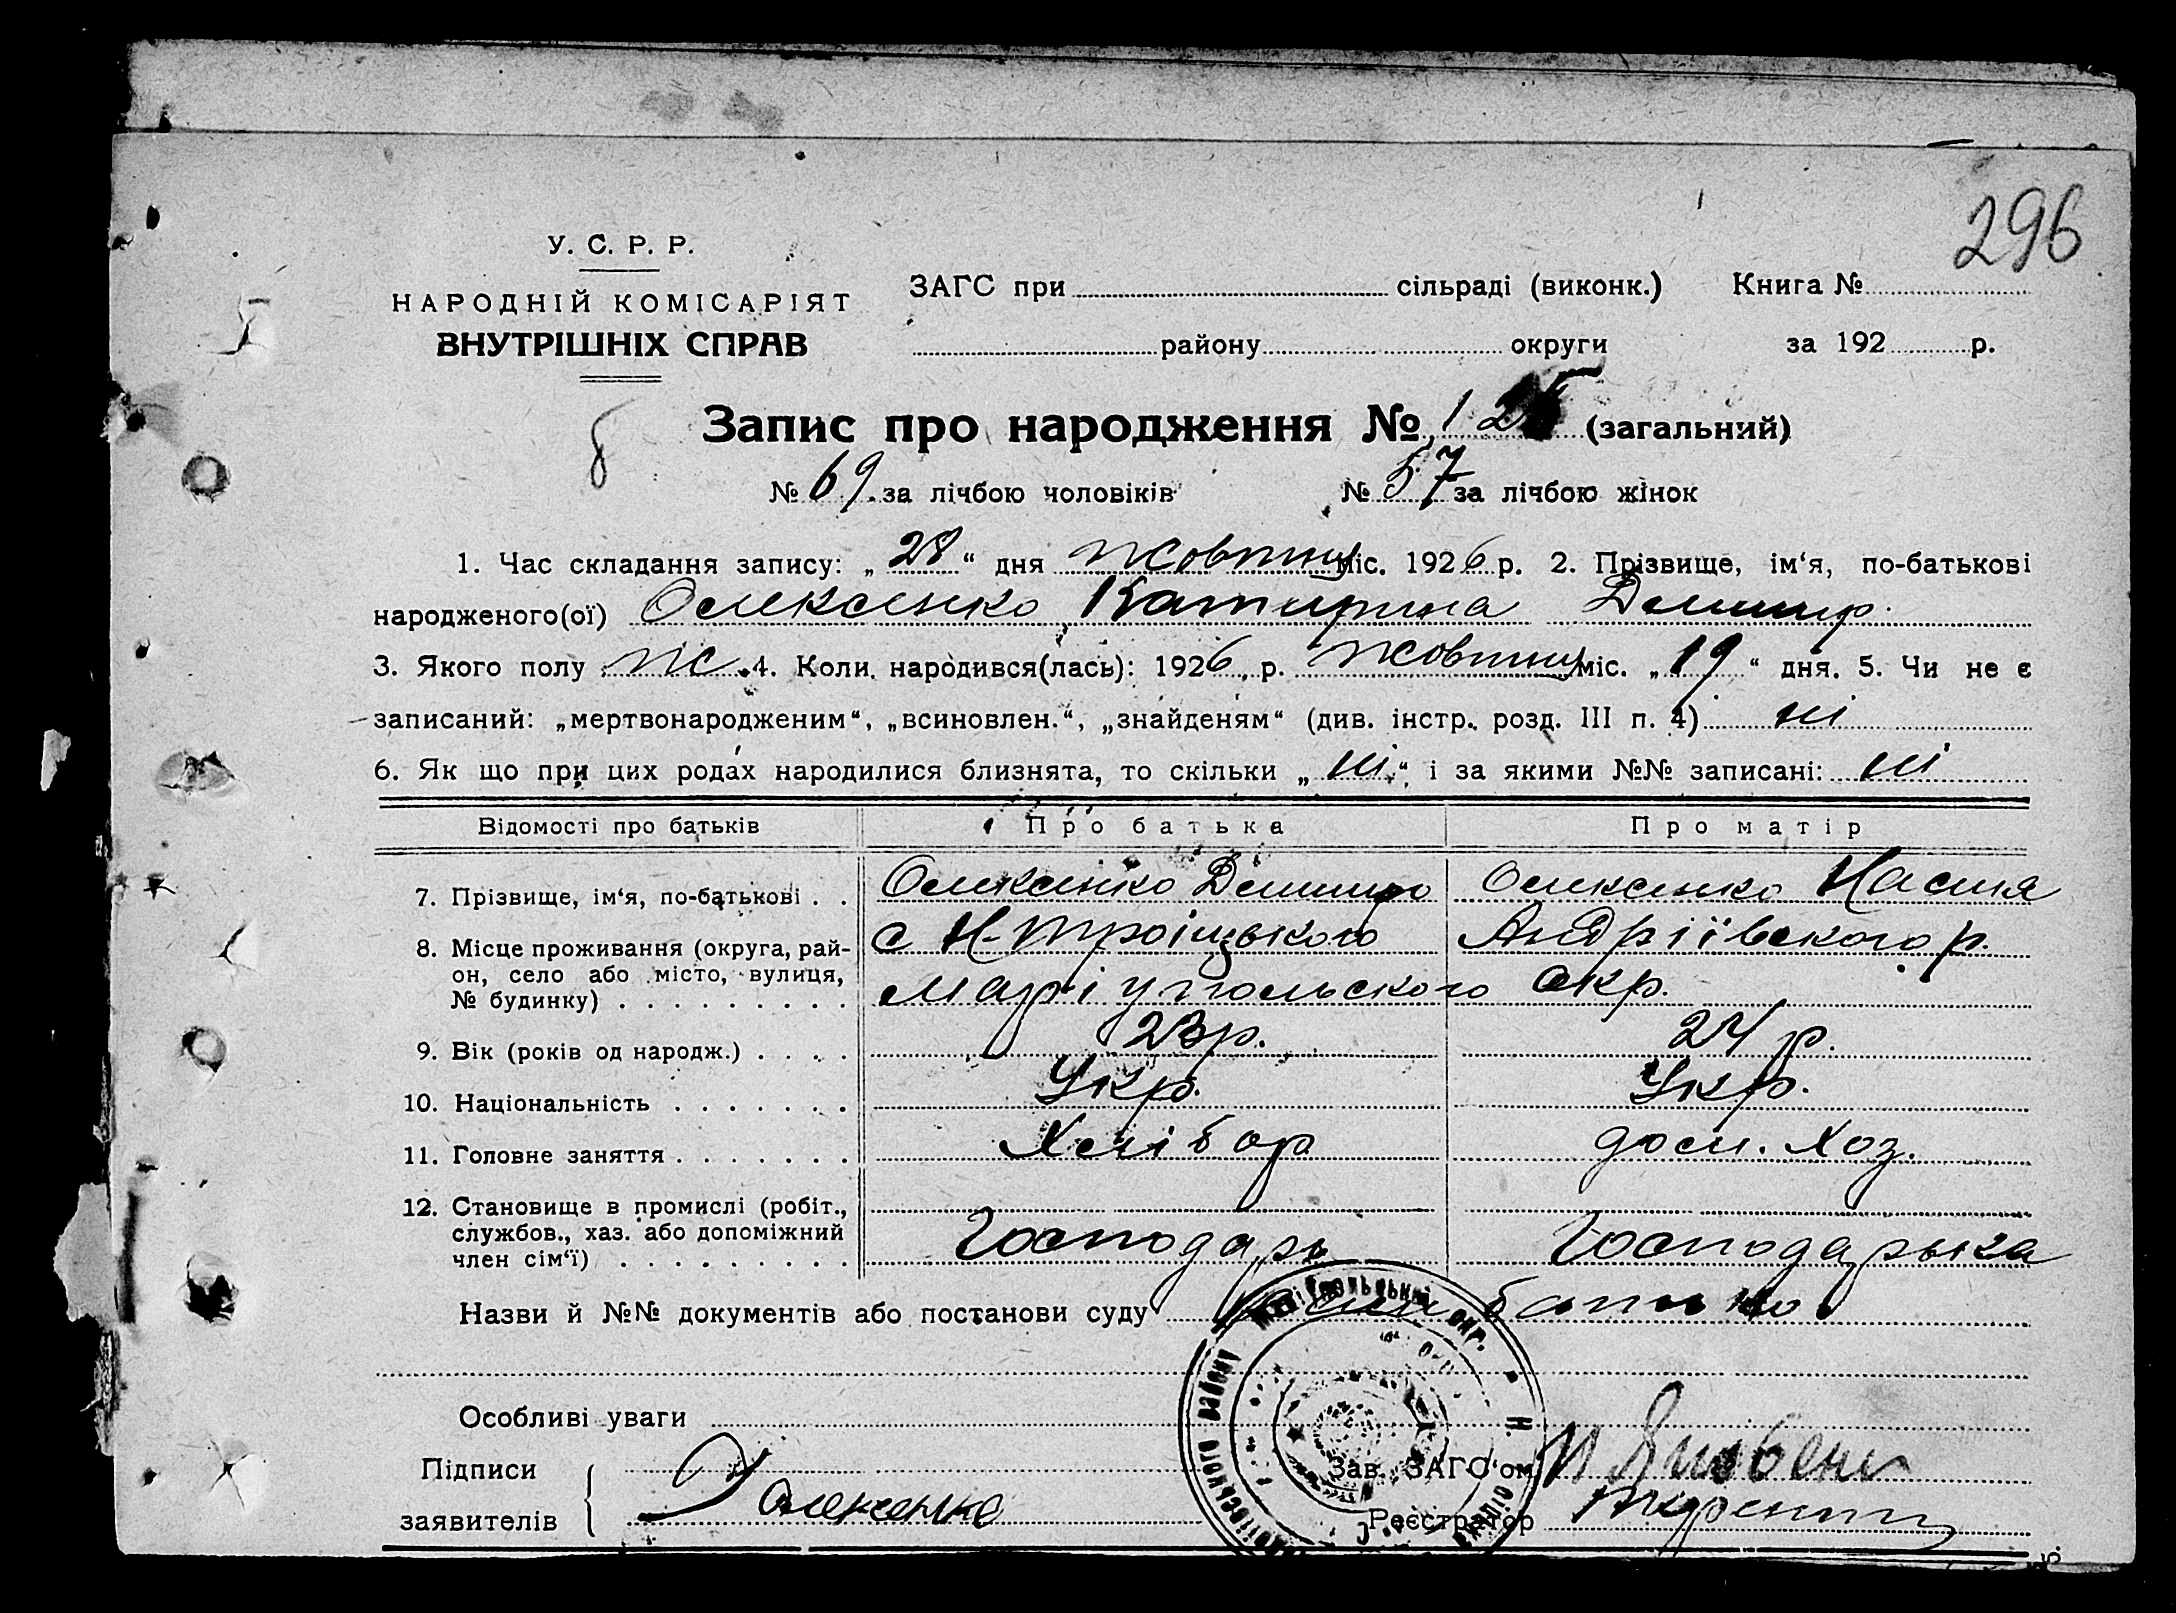 296
У. С. Р. Р.
НАРОДНІЙ КОМІСАРІЯТ
ВНУТРІШНІХ СПРАВ
ЗАГС при сільраді (виконк.) Книга №
району округи за 192 р.
Запис про народження № 12 (загальний)
№ 69 за лічбою чоловіків № 57 за лічбою жінок
1. Час складання запису: „28“ дня жовтня міс. 1926 р. 2. Прізвище, ім‘я, по-батькові
народженого(ої) Олексенко Катирина Демитр.
3. Якого полу жіс. 4. Коли народився(лась): 1926 р. жовтня міс. „19“ дня. 5. Чи не є
записаний: „мертвонародженим“, „всиновлен.“, „знайденям“ (див. інстр. розд. III п. 4) ні
6. Як що при цих родах народилися близнята, то скільки „ні“ і за якими №№ записані: ні
Відомості про батьків Про батька Про матір
7. Прізвище, ім‘я, по-батькові . . Олексенко Демитро Олексенко Настя
8. Місце проживання (округа, рай- с Н-Троіцького Андріївского р.
он, село або місто, вулиця,
№ будинку) . . . . . . . . . Маріупольского окр.
9. Вік (років од народж.) . . . . 23р. 24 р.
10. Національність . . . . . . . Укр. Укр.
11. Головне заняття . . . . . . . Хлібор дом. хоз.
12. Становище в промислі (робіт.,
службов., хаз. або допоміжний
член сім‘ї) . . . . . . . . . Господарь Господарька
Назви й №№ документів або постанови суду батько
Маріупольської окр.
району
Особливі уваги
Підписи Зав. ЗАГС‘ом
заявителів Реєстратор